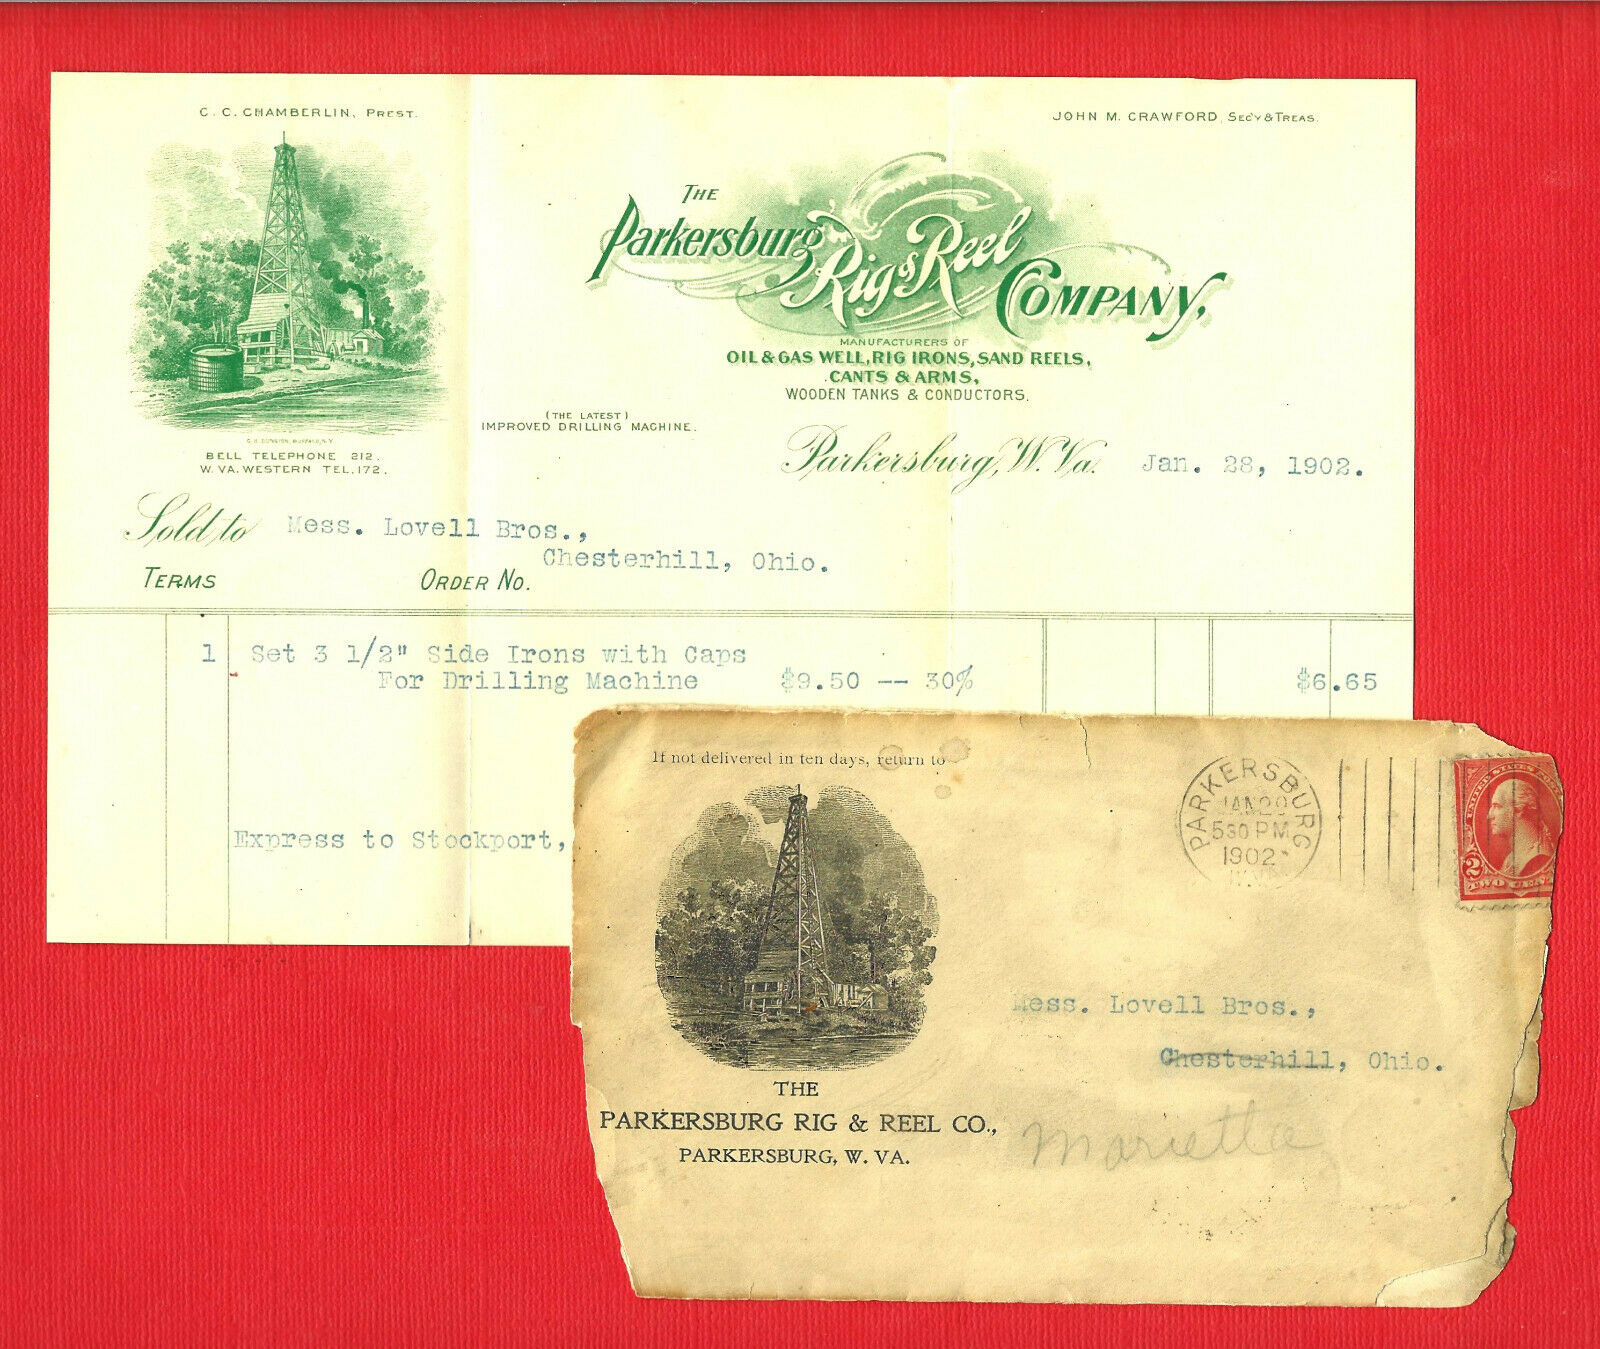 C. C. CHAMBERLIN, PREST.
JOHN M. CRAWFORD, SEC'Y & TREAS.
THE
Parkersburg Rig & Reel COMPANY,
MANUFACTURERS OF
OIL & GAS WELL, RIG IRONS, SAND REELS,
CANTS & ARMS,
WOODEN TANKS & CONDUCTORS.
(THE LATEST)
IMPROVED DRILLING MACHINE.
BUFFALO, N.Y.
BELL TELEPHONE 212.
W. VA. WESTERN TEL. 172.
Parkersburg, W. Va. Jan. 28, 1902.
Sold to Mess. Lovell Bros.,
Chesterhill, Ohio.
TERMS ORDER NO.
1 Set 3 1/2" Side Irons with Caps
For Drilling Machine $9.50 -- 30% $6.65
Express to Stockport,
If not delivered in ten days, return to
THE
PARKERSBURG RIG & REEL CO.,
PARKERSBURG, W. VA.
PARKERSBURG,
JAN
530 PM
1902
W.VA
UNITED STATES
2
TWO CENT
Mess. Lovell Bros.,
Chesterhill, Ohio.
Marietta